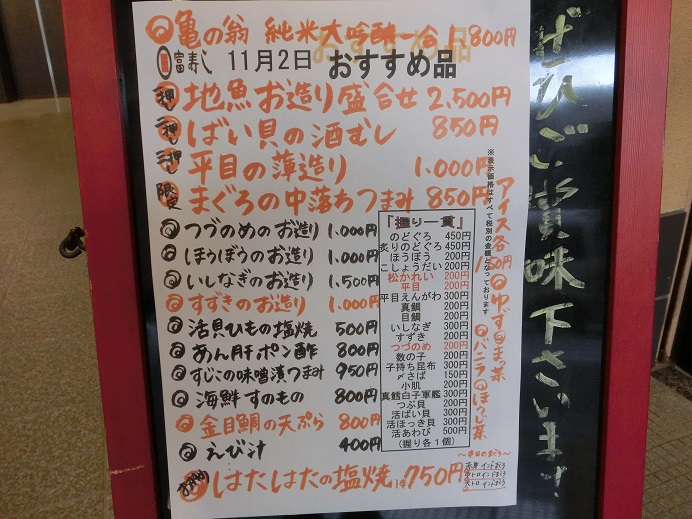 亀の翁 純米大吟醸一合 1,800円
富寿し 11月2日 おすすめ品
押 地魚お造り盛合せ 2,500円
二押し ばい貝の酒むし 850円
三押し 平目の薄造り 1,000円
限定 まぐろの中落ちつまみ 850円
つづのめのお造り 1,000円
ほうぼうのお造り 1,000円
いしなぎのお造り 1,500円
すずきのお造り 1,000円
活貝ひもの塩焼 500円
あん肝ポン酢 800円
すじこの味噌漬つまみ 950円
海鮮すのもの 800円
金目鯛の天ぷら 800円
えび汁 400円
はたはたの塩焼 750円
『握り一貫』
のどぐろ 450円
炙りのどぐろ 450円
ほうぼう 200円
こしょうだい 200円
松かれい 200円
平目 200円
平目えんがわ 300円
真鯛 200円
目鯛 200円
いしなぎ 300円
すずき 200円
つづのめ 200円
数の子 200円
子持ち昆布 300円
〆さば 150円
小肌 200円
真鱈白子軍艦 300円
つぶ貝 200円
活ばい貝 300円
活ほっき貝 300円
活あわび 500円
(握り各1個)
※表示価格はすべて税別の金額となっております
アイス各150円
ゆず
抹茶
バニラ
ほうじ茶
〜本日のまぐろ〜
インドまぐろ
中トロ インドまぐろ
大トロ インドまぐろ
ぜひご賞味下さいませ